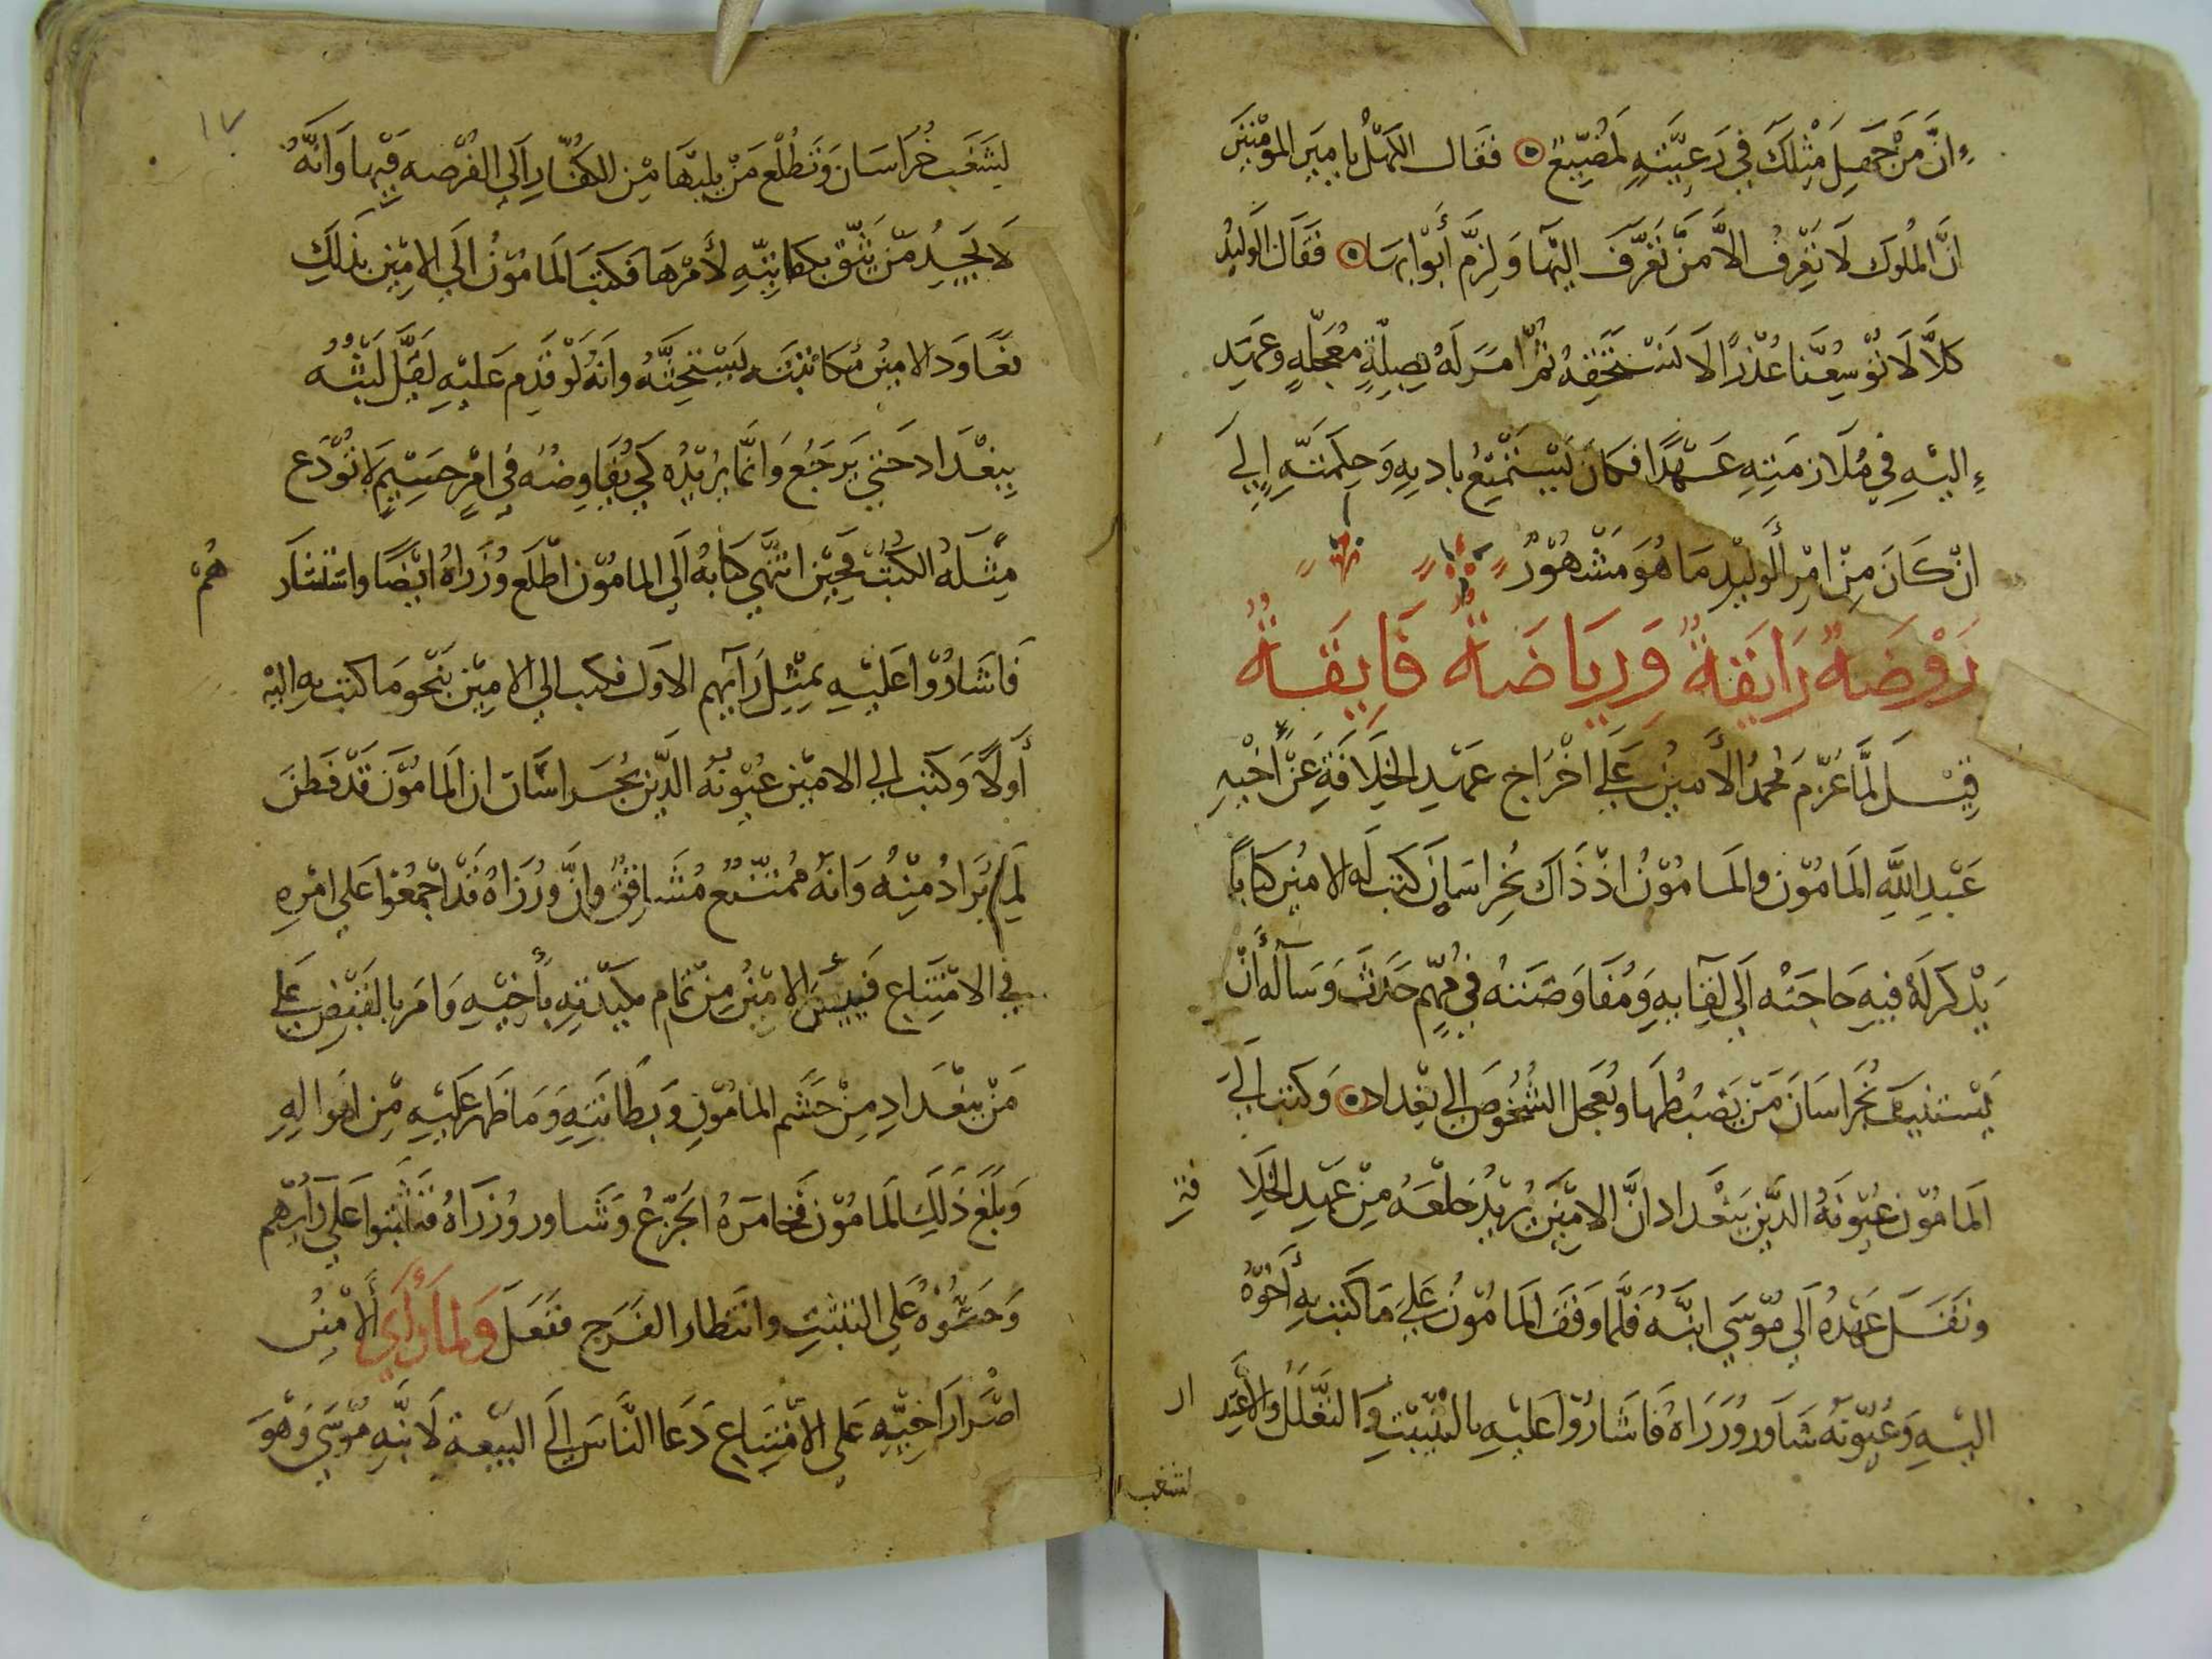 ان من جهل مثلك في رعيته لمضيع فقال الكهل يا امير المومنين
ان الملوك لا تعرف الا من تعرف اليها ولزم أبوابها فقال الوليد
كلا لا توسعنا عذرا الا نستخفه ثم امر له بصلة معجلة وعهد
اليه في ملازمته عهدا فكان يستمتع بادبه وحكمته إلي
ان كان من امر الوليد ما هو مشهور
روضة رايقة ورياضة فايقة
قيل لما عزم محمد الأمين علي اخراج عهد الخلافة عن أخيه
عبد الله المامون والمامون اذ ذاك بخراسان كتب له الامين كتابا
يذكر له فيه حاجته الي لقايه ومفاوضته في مهم حدث وسآله أن
يستنيب بخراسان من يضبطها ويعجل الشخوص الي بغداد وكتب الي
المامون عيونه الذين ببغداد ان الامين يريد خلعه من عهد الخلافة
ونقل عهده الي موسي ابنه فلما وقف المامون علي ما كتب به أخوه
اليه وعيونه شاور وزراه فاشاروا عليه بالتثبت والتعلل والاعتدار
لشغب
١٧
لشغب خراسان وتطلع من يليها من الكفار الي الفرصه فيها وانه
لا يجد من يثق بكفايته لأمرها فكتب المامون الي الامين بذلك
فعاود الامين مكاتبته يستحثه وانه لو قدم عليه لقل لبثه
ببغداد حتي يرجع وانما يريده كي يفاوضه في امر جسيم لا تودع
مثله الكتب فحين انتهي كتابه الي المامون اطلع وزراه ايضا واستشارهم
فاشاروا عليه بمثل رآيهم الاول فكتب الي الامين بنحو ما كتب به اليه
أولا وكتب الي الامين عيونه الذين بخراسان ان المامون قد فطن
لما يراد منه وانه ممتنع مشاقق وان وزراه قد اجمعوا علي امره
في الامتناع فييس الامين من تمام مكيدته بأخيه وامر بالقبض علي
من ببغداد من حشم المامون وبطانته وما ظهر عليه من امواله
وبلغ ذلك المامون فخامره الجزع وشاور وزراه فثبتوا علي رآيهم
وحثوه علي التثبت وانتظار الفرج ففعل ولما رأي ألامين
اصرار اخيه علي الامتناع دعا الناس الي البيعة لابنه موسي وهو